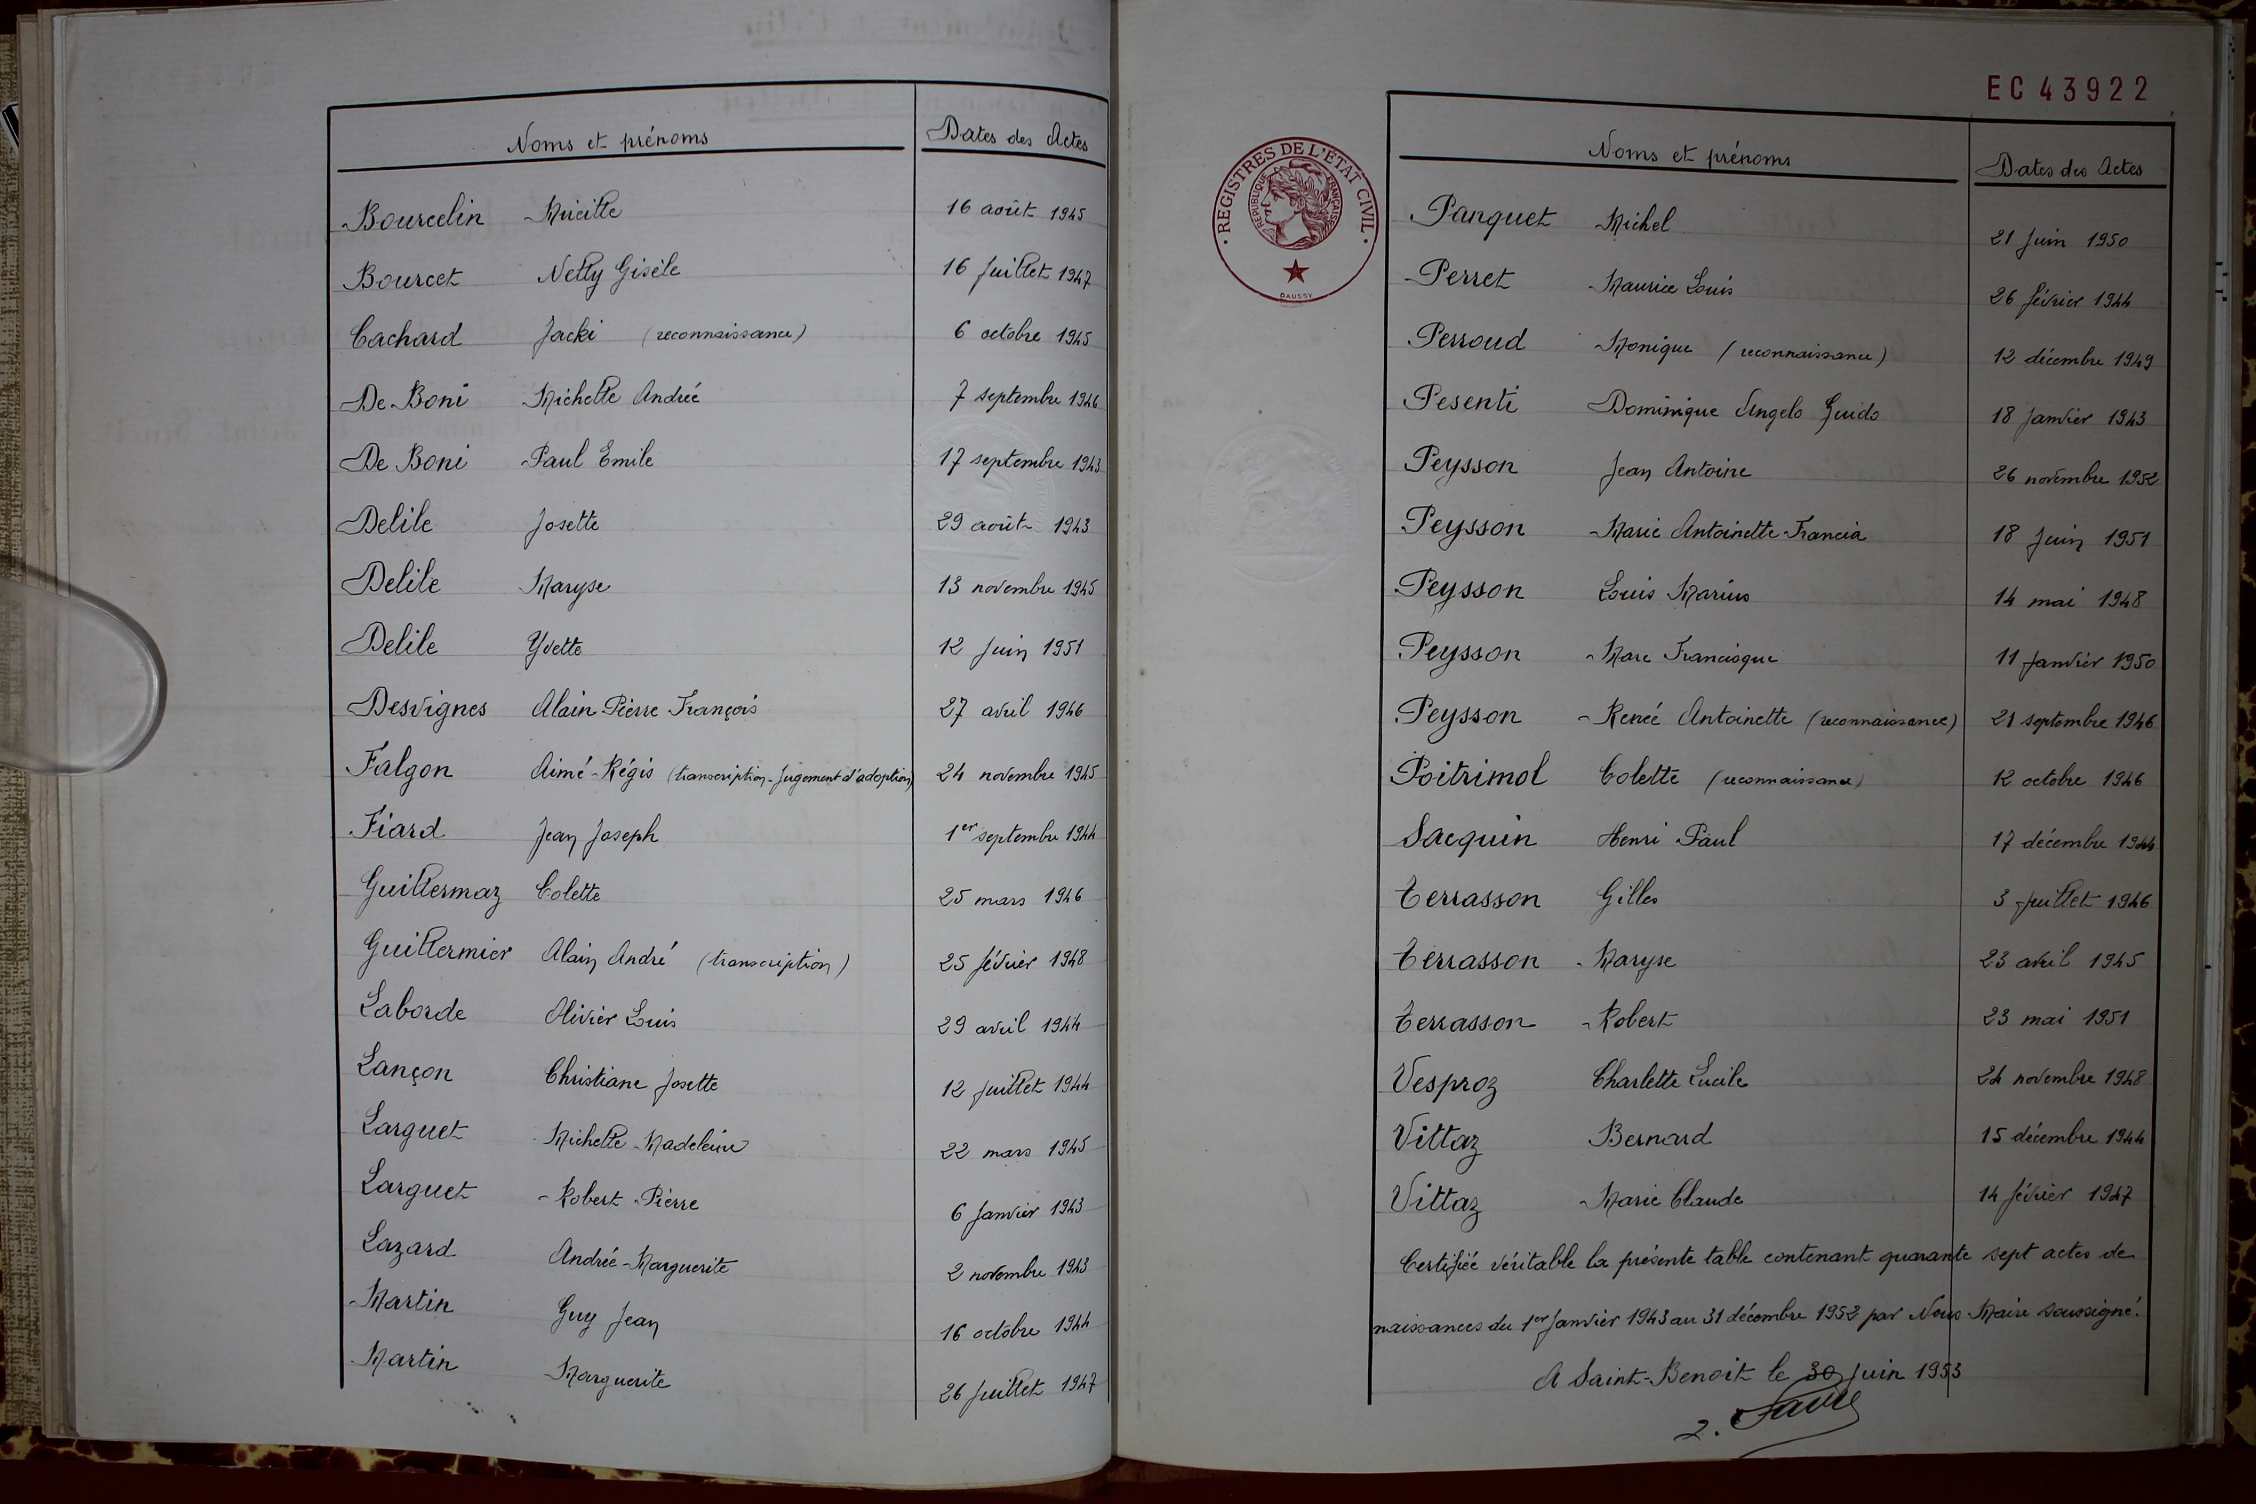 Noms et prénoms Dates des Actes
Bourcelin Mireille 16 août 1945
Bourcet Nelly Gisèle 16 Juillet 1947
Cachard Jacki (reconnaissance) 6 octobre 1945
De Boni Michelle Andrée 7 septembre 1946
De Boni Paul Emile 17 septembre 1943
Delile Josette 29 août 1943
Delile Maryse 13 novembre 1945
Delile Yvette 12 Juin 1951
Desvignes Alain Pierre François 27 avril 1946
Falgon Aimé-Régis (transcription-jugement d'adoption) 24 novembre 1945
Fiard Jean Joseph 1er septembre 1944
Guillermaz Colette 25 mars 1946
Guillermier Alain André (transcription) 25 février 1948
Laborde Olivier Louis 29 avril 1944
Lançon Christiane Josette 12 Juillet 1944
Larguet Michelle Madeleine 22 mars 1945
Larguet Robert Pierre 6 Janvier 1943
Lazard Andrée-Marguerite 2 novembre 1943
Martin Guy Jean 16 octobre 1944
Martin Marguerite 26 Juillet 1947
EC 43922
REGISTRES DE L'ÉTAT CIVIL
RÉPUBLIQUE FRANÇAISE
DAUSSY
Noms et prénoms Dates des Actes
Panquet Michel 21 Juin 1950
Perret Maurice Louis 26 février 1944
Perroud Monique (reconnaissance) 12 décembre 1949
Pesenti Dominique Angelo Guido 18 Janvier 1943
Peysson Jean Antoine 26 novembre 1952
Peysson Marie Antoinette Francia 18 Juin 1951
Peysson Louis Marius 14 mai 1948
Peysson Marc Francisque 11 Janvier 1950
Peysson Renée Antoinette (reconnaissance) 21 septembre 1946
Poitrimol Colette (reconnaissance) 12 octobre 1946
Sacquin Henri Paul 17 décembre 1944
Terrasson Gilles 3 Juillet 1946
Terrasson Maryse 23 avril 1945
Terrasson Robert 23 mai 1951
Vesproz Charlette Lucile 24 novembre 1948
Vittaz Bernard 15 décembre 1944
Vittaz Marie Claude 14 février 1947
Certifiée véritable la présente table contenant quarante sept actes de
naissances du 1er Janvier 1943 au 31 décembre 1952 par Nous Maire soussigné.
A Saint-Benoit le 30 Juin 1953
2. Favre